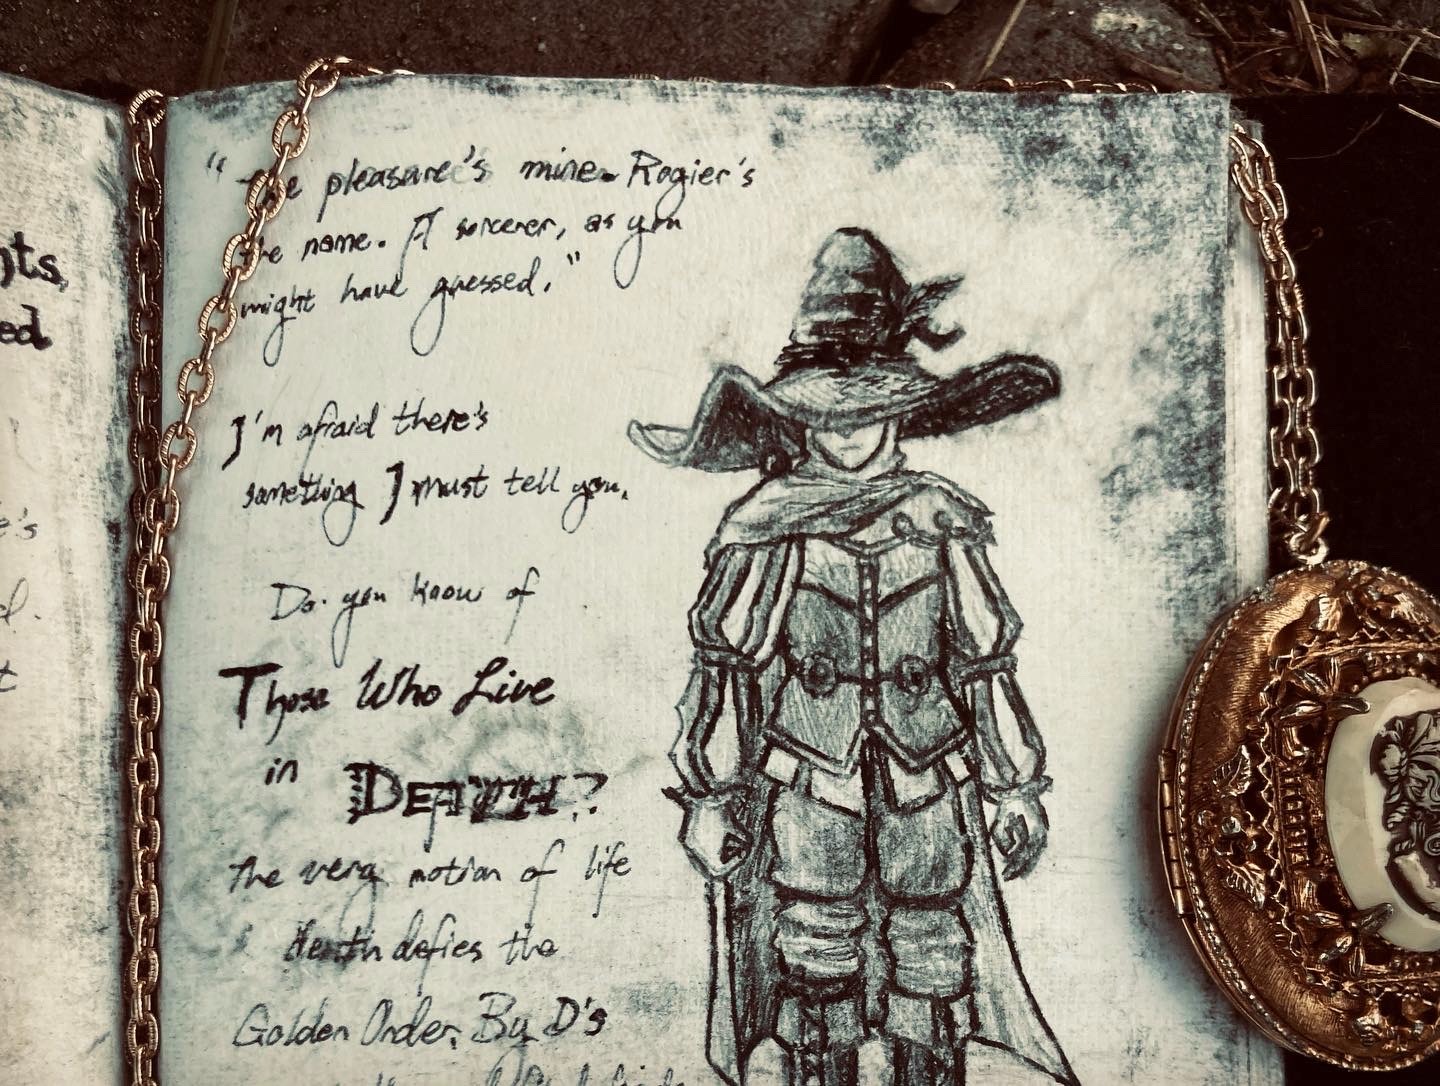 nts,
ed.
e's
d.
t
"the pleasure's mine. Rogier's
the name. A sorcerer, as you
might have guessed."
I'm afraid there's
something I must tell you.
Do you know of
Those Who Live
in DEATH?
the very motion of life
death defies the
Golden Order. By D's